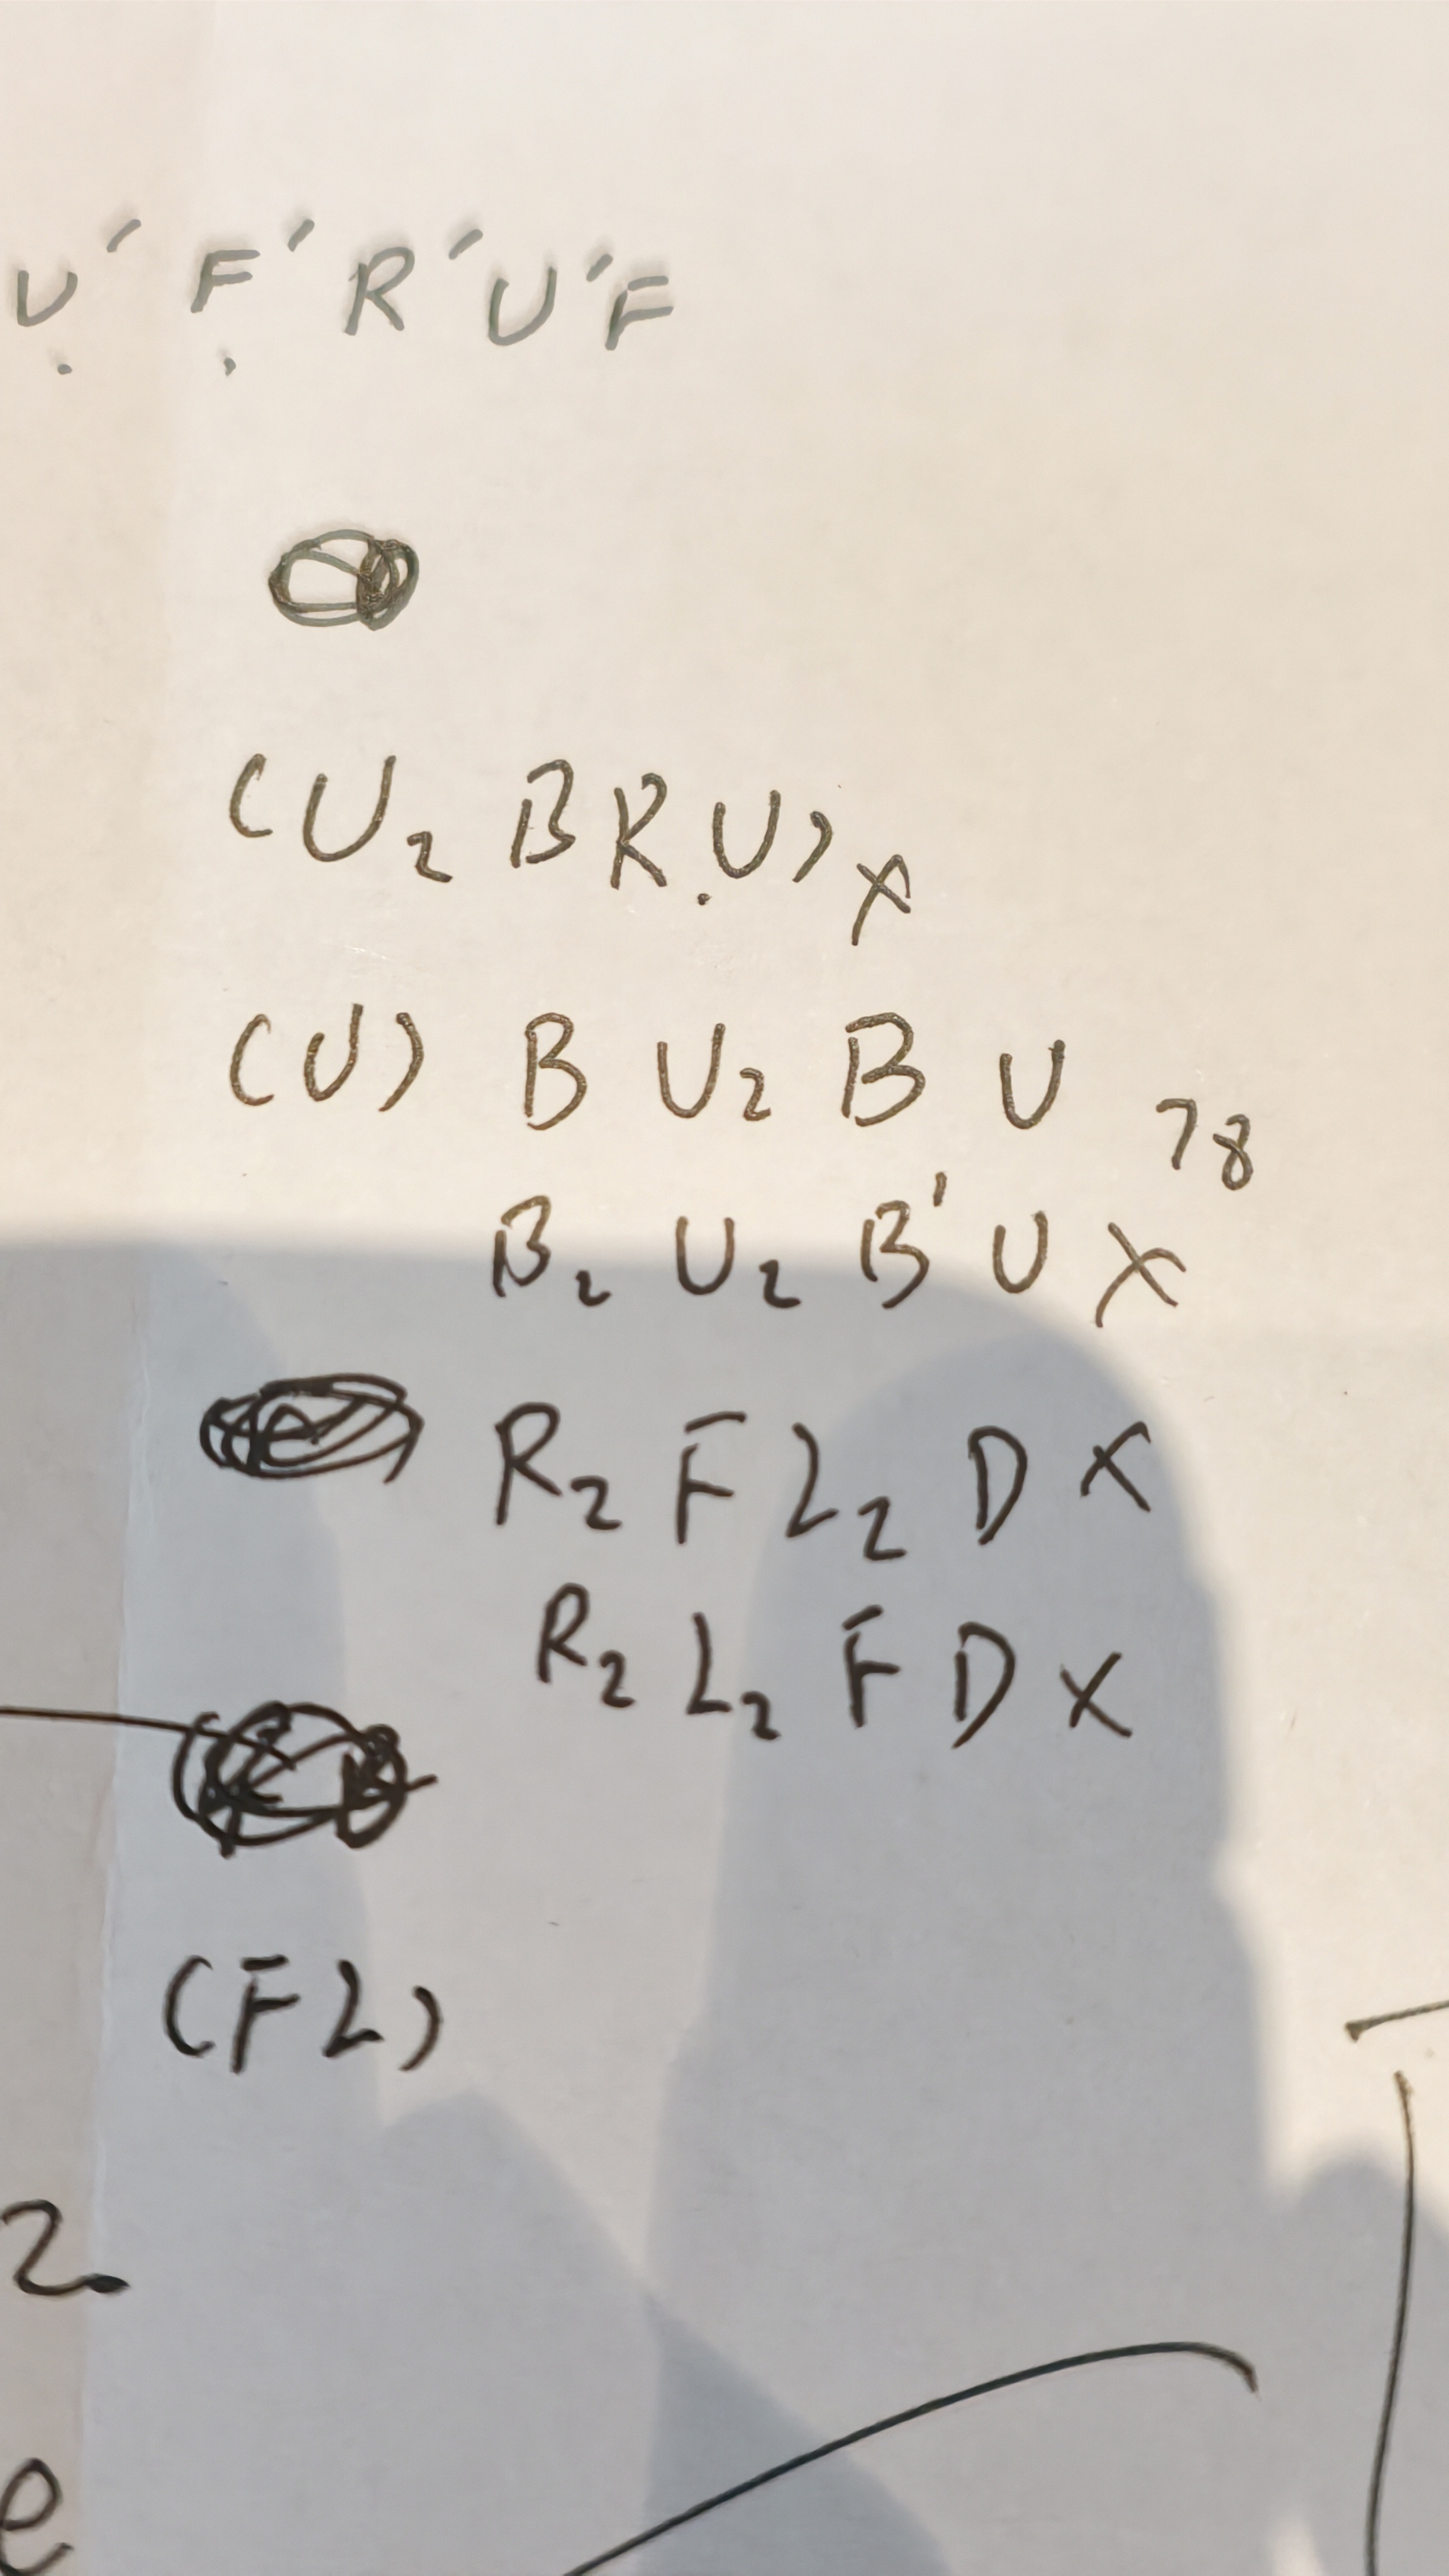 U' F' R' U' F
(U2 B R U) x
(U) B U2 B U 78
B2 U2 B' U X
R2 F L2 D X
R2 L2 F D X
(F L)
2.
e